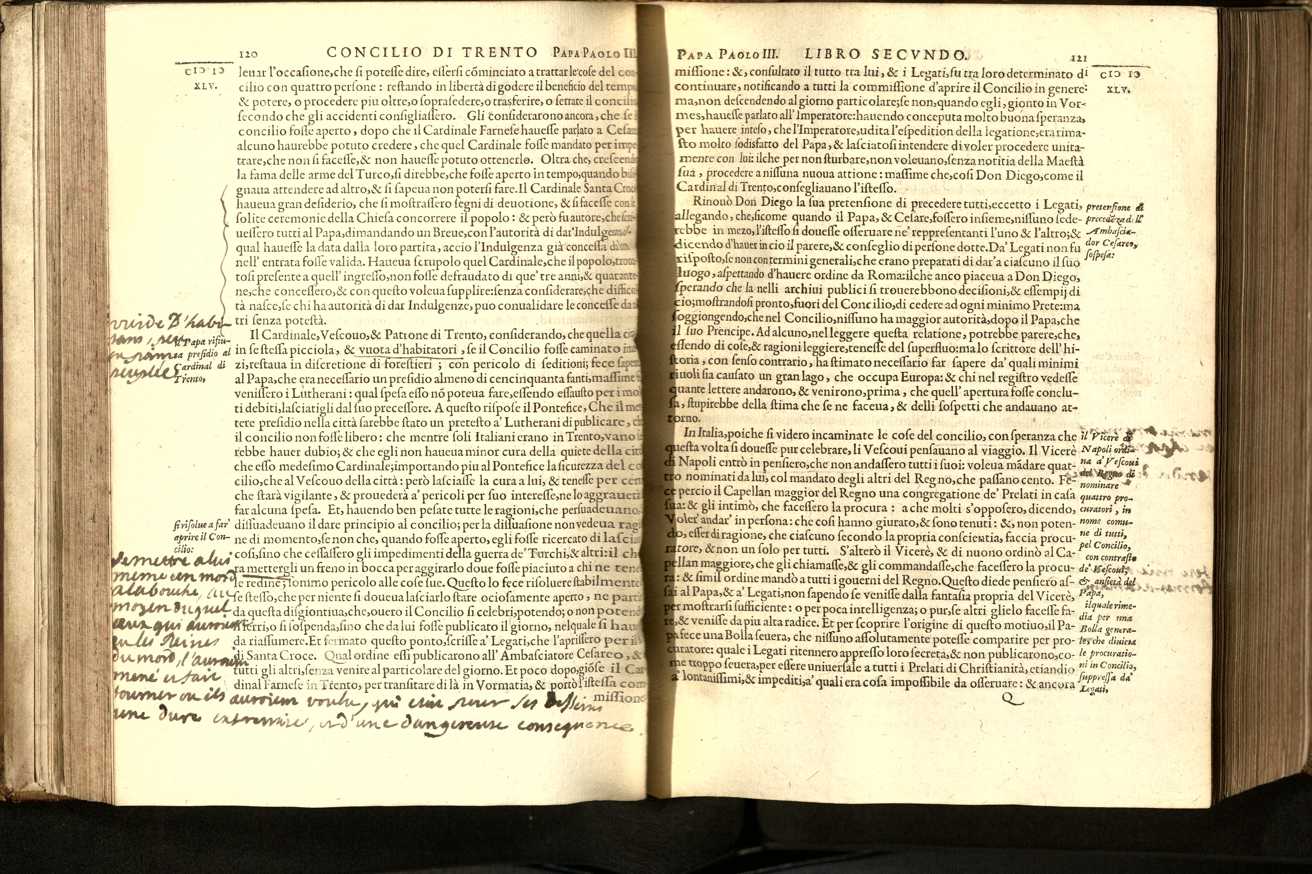 120 CONCILIO DI TRENTO PAPA PAOLO III.
CIƆ IƆ
XLV.
leuar l'occasione, che si potesse dire, essersi cõminciato a trattar le cose del con-
cilio con quattro persone : restando in libertà di godere il beneficio del tempo
& potere, o procedere piu oltre, o soprasedere, o trasferire, o serrate il concilio
secondo che gli accidenti consigliassero. Gli considerarono ancora, che se
concilio fosse aperto, dopo che il Cardinale Farnese hauesse parlato a Cesare
alcuno haurebbe potuto credere, che quel Cardinale fosse mandato per impe-
trare, che non si facesse, & non hauesse potuto ottenerlo. Oltra che, crescendo
la fama delle arme del Turco, si direbbe, che fosse aperto in tempo, quando biso-
gnaua attendere ad altro, & si sapeua non potersi fare. Il Cardinale Santa Croce
haueua gran desiderio, che si mostrassero segni di deuotione, & si facesse con le
solite ceremonie della Chiesa concorrere il popolo : & però fu autore, che scri-
uessero tutti al Papa, dimandando un Breue, con l'autorità di dar' Indulgenze
qual hauesse la data dalla loro partita, accio l'Indulgenza già concessa
nell' entrata fosse valida. Haueua scrupolo quel Cardinale, che il popolo, troua-
tosi presente a quell' ingresso, non fosse defraudato di que' tre anni, & quarante-
ne, che concessero, & con questo voleua supplire : senza considerare, che difficol-
tà nasce, se chi ha autorità di dar Indulgenze, puo conualidare le concesse da al-
tri senza potestà.
Il Cardinale, Vescouo, & Patrone di Trento, considerando, che quella città
in se stessa picciola, & vuota d'habitatori , se il Concilio fosse caminato inan-
zi, restaua in discretione di forestieri ; con pericolo di seditioni; fece sapere
al Papa, che era necessario un presidio almeno di cencinquanta fanti, massime se
venissero i Lutherani : qual spesa esso nõ poteua fare, essendo essausto per i mol-
ti debiti, lasciatigli dal suo precessore. A questo rispose il Pontefice, Che il met-
tere presidio nella città sarebbe stato un pretesto a' Lutherani di publicare, che
il concilio non fosse libero : che mentre soli Italiani erano in Trento, vano sa-
rebbe hauer dubio; & che egli non haueua minor cura della quiete della città
che esso medesimo Cardinale; importando piu al Pontefice la sicurezza del con-
cilio, che al Vescouo della città : però lasciasse la cura a lui, & tenesse per certo
che starà vigilante, & prouederà a' pericoli per suo interesse, ne lo aggrauerà
far alcuna spesa. Et, hauendo ben pesate tutte le ragioni, che persuadeuano,
dissuadeuano il dare principio al concilio; per la dissuasione non vedeua ragio-
ne di momento, se non che, quando fosse aperto, egli fosse ricercato di lasciar
così, sino che cessassero gli impedimenti della guerra de' Turchi, & altri : il che
ra mettergli un freno in bocca per aggirarlo doue fosse piaciuto a chi ne tenesse
le redine; sommo pericolo alle cose sue. Questo lo fece risoluere stabilmente
se stesso, che per niente si doueua lasciarlo stare ociosamente aperto , ne partire
da questa disgiontiua, che, ouero il Concilio si celebri, potendo; o non potendo
serri, o si sospenda, sino che da lui fosse publicato il giorno, nel quale si hauesse
da riassumere. Et fermato questo ponto, scrisse a' Legati, che l'aprissero per il
di Santa Croce. Qual ordine essi publicarono all' Ambasciatore Cesareo , &
tutti gli altri, senza venire al particolare del giorno. Et poco dopo, giõse il Car-
dinal Farnese in Trento, per transitare di là in Vormatia, & portò l'istessa com-
missione
vuide d'habi-
tans
Il Papa rifiu-
ta presidio al
Cardinal di
Trento,
si risolue a far'
aprire il Con-
cilio:
se mettre a lui
meme un mord
a la bouche, au
moyen duquel
ceux qui auroient
eu les Reines
du mord, l'auroient
mené et fair
tourner ou ils auroient voulu, qui etoit jetter ses desseins
une dure extremité, et d'une dangereuse consequence.
PAPA PAOLO III. LIBRO SECVNDO. 121
CIƆ IƆ
XLV.
missione : &, consultato il tutto tra lui, & i Legati, fu tra loro determinato di
continuare, notificando a tutti la commissione d'aprire il Concilio in genere:
ma, non descendendo al giorno particolare; se non, quando egli, gionto in Vor-
mes, hauesse parlato all' Imperatore : hauendo conceputa molto buona speranza,
per hauere inteso, che l'Imperatore, udita l'espedition della legatione, era rima-
sto molto sodisfatto del Papa, & lasciatosi intendere di voler procedere unita-
mente con lui : ilche per non sturbare, non voleuano, senza notitia della Maestà
sua , procedere a nissuna nuoua attione : massime che, così Don Diego, come il
Cardinal di Trento, consegliauano l'istesso.
Rinouò Don Diego la sua pretensione di precedere tutti, eccetto i Legati,
allegando, che, sicome quando il Papa, & Cesare, fossero insieme, nissuno sede-
rebbe in mezo, l'istesso si douesse osseruare ne' reppresentanti l'uno & l'altro; &
dicendo d'hauer in cio il parere, & conseglio di persone dotte. Da' Legati non fu
risposto, se non con termini generali, che erano preparati di dar' a ciascuno il suo
luogo, aspettando d'hauere ordine da Roma : ilche anco piaceua a Don Diego,
sperando che la nelli archiui publici si trouerebbono decisioni, & essempij di
cio; mostrandosi pronto, fuori del Concilio, di cedere ad ogni minimo Prete : ma
soggiongendo, che nel Concilio, nissuno ha maggior autorità, dopo il Papa, che
il suo Prencipe. Ad alcuno, nel leggere questa relatione, potrebbe parere, che,
essendo di cose, & ragioni leggiere, tenesse del superfluo : ma lo scrittore dell' hi-
storia , con senso contrario, ha stimato necessario far sapere da' quali minimi
riuoli sia causato un gran lago , che occupa Europa : & chi nel registro vedesse
quante lettere andarono, & venirono, prima , che quell' apertura fosse conclu-
sa, stupirebbe della stima che se ne faceua, & delli sospetti che andauano at-
torno.
In Italia, poiche si videro incaminate le cose del concilio, con speranza che
questa volta si douesse pur celebrare, li Vescoui pensauano al viaggio. Il Vicerè
di Napoli entrò in pensiero, che non andassero tutti i suoi : voleua mãdare quat-
tro nominati da lui, col mandato degli altri del Regno, che passano cento. Fe-
ce percio il Capellan maggior del Regno una congregatione de' Prelati in casa
sua : & gli intimò, che facessero la procura : a che molti s'opposero, dicendo,
Voler' andar' in persona : che così hanno giurato, & sono tenuti : &, non poten-
do, esser di ragione, che ciascuno secondo la propria conscientia, faccia procu-
ratore, & non un solo per tutti. S'alterò il Vicerè, & di nuouo ordinò al Ca-
pellan maggiore, che gli chiamasse, & gli commandasse, che facessero la procu-
ra : & simil ordine mandò a tutti i gouerni del Regno. Questo diede pensiero as-
sai al Papa, & a' Legati, non sapendo se venisse dalla fantasia propria del Vicerè,
per mostrarsi sufficiente : o per poca intelligenza; o pur, se altri glielo facesse fa-
re, & venisse da piu alta radice. Et per scoprire l'origine di questo motiuo, il Pa-
pa fece una Bolla seuera, che nissuno assolutamente potesse comparire per pro-
curatore : quale i Legati ritennero appresso loro secreta, & non publicarono, co-
me troppo seuera, per essere uniuersale a tutti i Prelati di Christianità, etiandio
a' lontanissimi, & impediti, a' quali era cosa impossibile da osseruare : & ancora
Q
pretensione di
precedẽza dell'
Ambascia-
dor Cesareo,
sospesa:
il Vicerè di
Napoli ordi-
na a' Vescoui
del Regno di
nominare
quattro pro-
curatori , in
nome comu-
ne di tutti,
pel Concilio,
con contrasto
de' Vescoui,
& ansietà del
Papa,
il quale rime-
dia per una
Bolla genera-
le, che diuieta
le procuratio-
ni in Concilio,
suppressa da'
Legati,